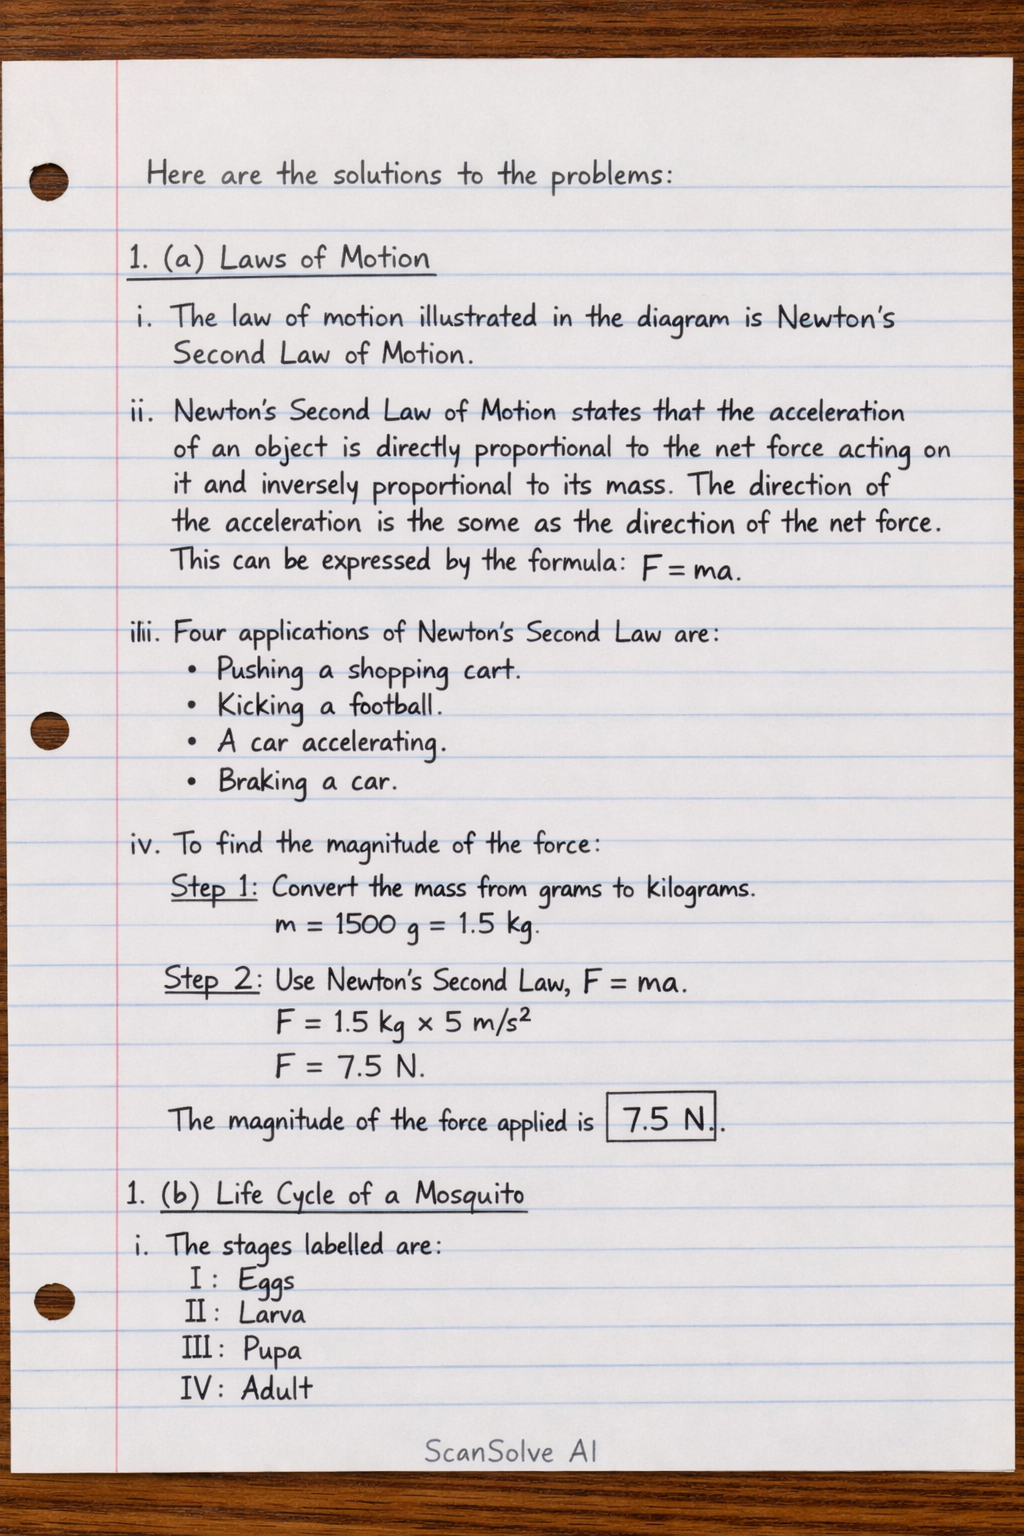 Here are the solutions to the problems:
1. (a) Laws of Motion
i. The law of motion illustrated in the diagram is Newton's
Second Law of Motion.
ii. Newton's Second Law of Motion states that the acceleration
of an object is directly proportional to the net force acting on
it and inversely proportional to its mass. The direction of
the acceleration is the some as the direction of the net force.
This can be expressed by the formula: F = ma.
iiii. Four applications of Newton's Second Law are:
• Pushing a shopping cart.
• Kicking a football.
• A car accelerating.
• Braking a car.
iv. To find the magnitude of the force:
Step 1: Convert the mass from grams to kilograms.
m = 1500 g = 1.5 kg.
Step 2: Use Newton's Second Law, F = ma.
F = 1.5 kg × 5 m/s²
F = 7.5 N.
The magnitude of the force applied is 7.5 N..
1. (b) Life Cycle of a Mosquito
i. The stages labelled are:
I: Eggs
II: Larva
III: Pupa
IV: Adult
ScanSolve AI